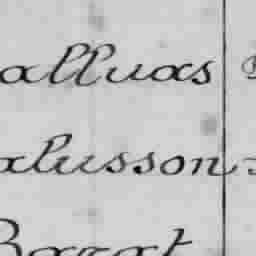 alluas
alusson
Barat